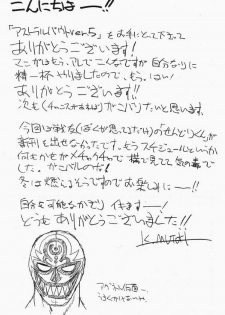 こんにちはーー!!
「アストラルバウトver.5」をお手にとって下さって
ありがとうございます!
マンガはもう、アレでこんなですが自分なりに
精一杯やりましたので、もう、はい!
ありがとうございます!
次も(チャンスがあれば)がんばりたいと思います。
今回は戦友(ぼくが思ってるだけ)のせんどりくんが
新刊を出せなかったです。もうスケジュールというか
何もかもがメチャクチャで横で見てて気の毒で
した。がんばルのだ!
冬は燃えるそうですのでお楽しみにーー!!
自分も可能なかぎりイキますー!
どうもありがとうございました!!